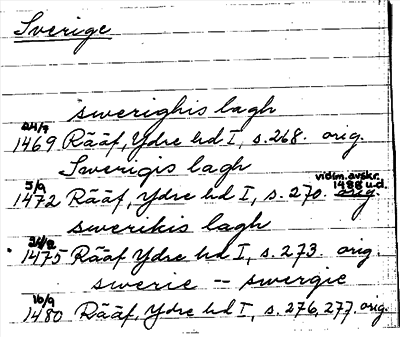 Sverige
swerighis lagh
24/9 1469 Rääf, Ydre hd I, s. 268. orig.
Swerigis lagh
vidim. avskr. 1488 u.d.
5/9 1472 Rääf, Ydre hd I, s. 270. orig
swerikis lagh
1475 Rääf Ydre hd I, s. 273. orig.
swerie -- swergie
10/9 1480 Rääf, Ydre hd I, s. 276, 277. orig.